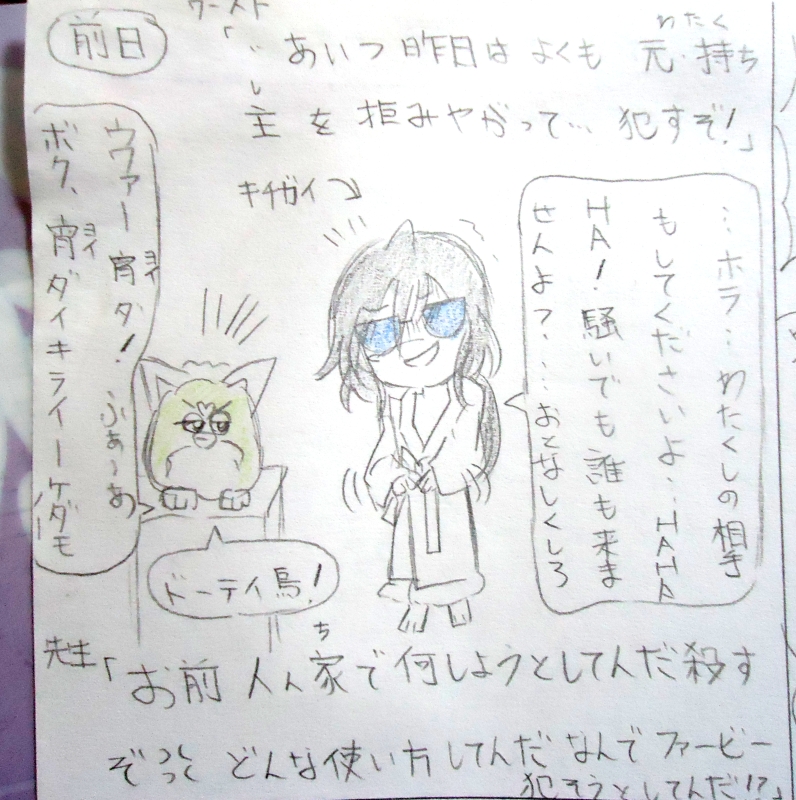 前日
ワースト
「あいつ昨日はよくも元・持ち
わたく
し
主を拒みやがって…犯すぞ!」
キチガイ
…ホラ…わたくしの相手
もしてくださいよ…HAHA
HA!騒いでも誰も来ま
せんよ?……おとなしくしろ
ウファー宵ダ!ふぁーあ
ヨイ
ボク、宵ダイキライーケダモ
ヨイ
ドーティ鳥!
先生「お前人ん家で何しようとしてんだ殺す
ち
ぞっつってどんな使い方してんだなんでファービー
犯そうとしてんだ!?」